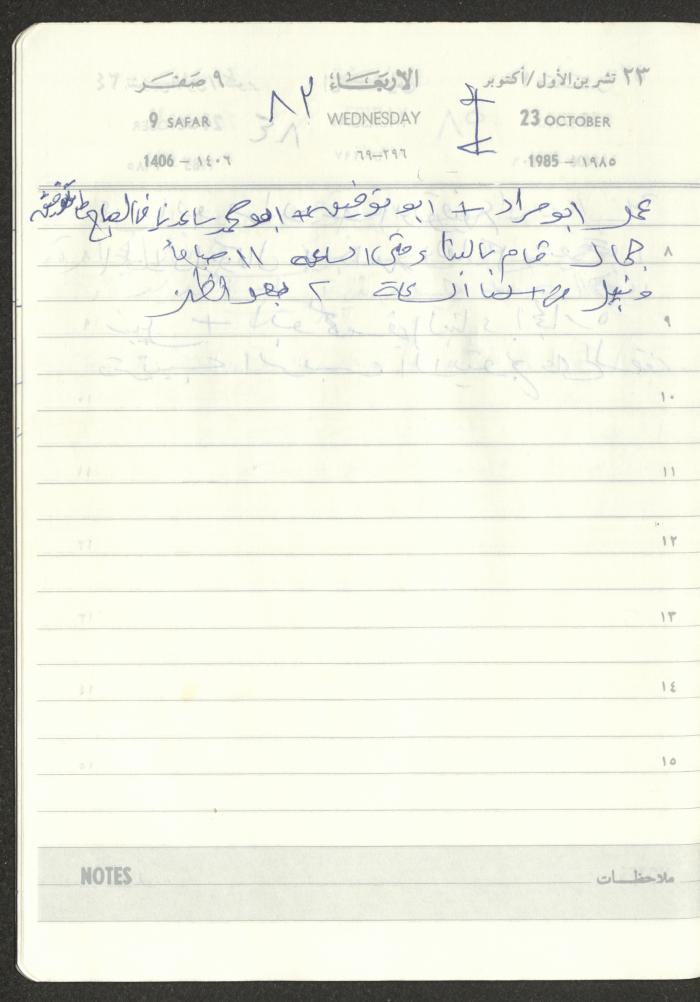 ٢٣ تشرين الأول/أكتوبر الأربعاء ٩ صفر
٨٢
23 OCTOBER WEDNESDAY 9 SAFAR
١٩٨٥ – 1985 ٢٩٦–٦٩ ١٤٠٦ – 1406
عمر ابو مراد + ابو توفيق + ابو محمد ساعدنا في الصباح
جمال قام بالبنا وحتى الساعه ١١ صباحاً
ونبيل الساعة ٢ بعد الظهر
٨
٩
١٠
١١
١٢
١٣
١٤
١٥
ملاحظات NOTES